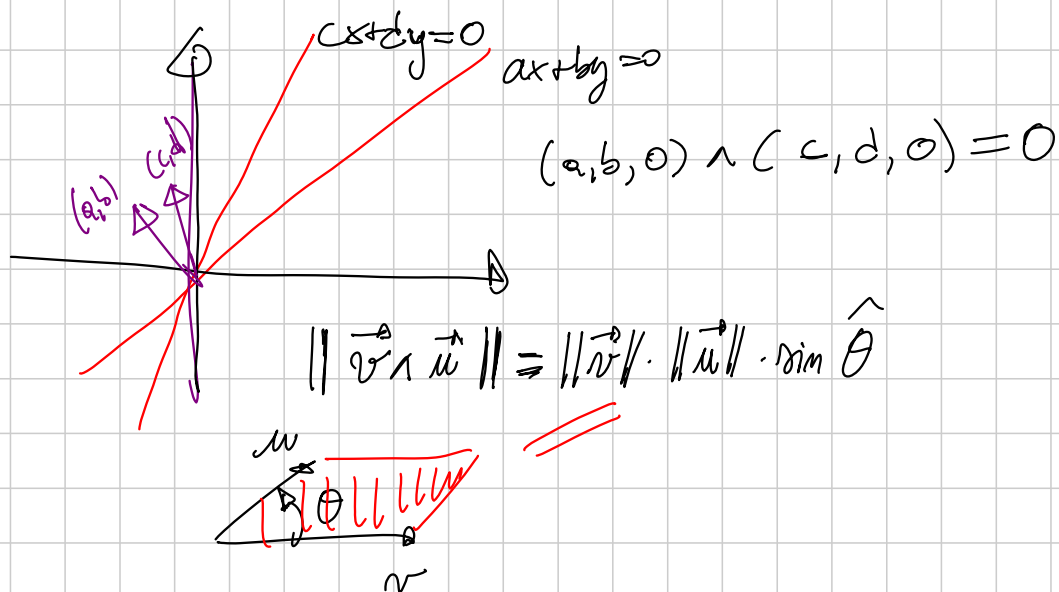 cx+dy=0
ax+by=0
(a,b,0) ∧ (c,d,0) = 0
(c,d)
(a,b)
‖v⃗ ∧ u⃗‖ = ‖v⃗‖ · ‖u⃗‖ · sin θ̂
u
θ
v